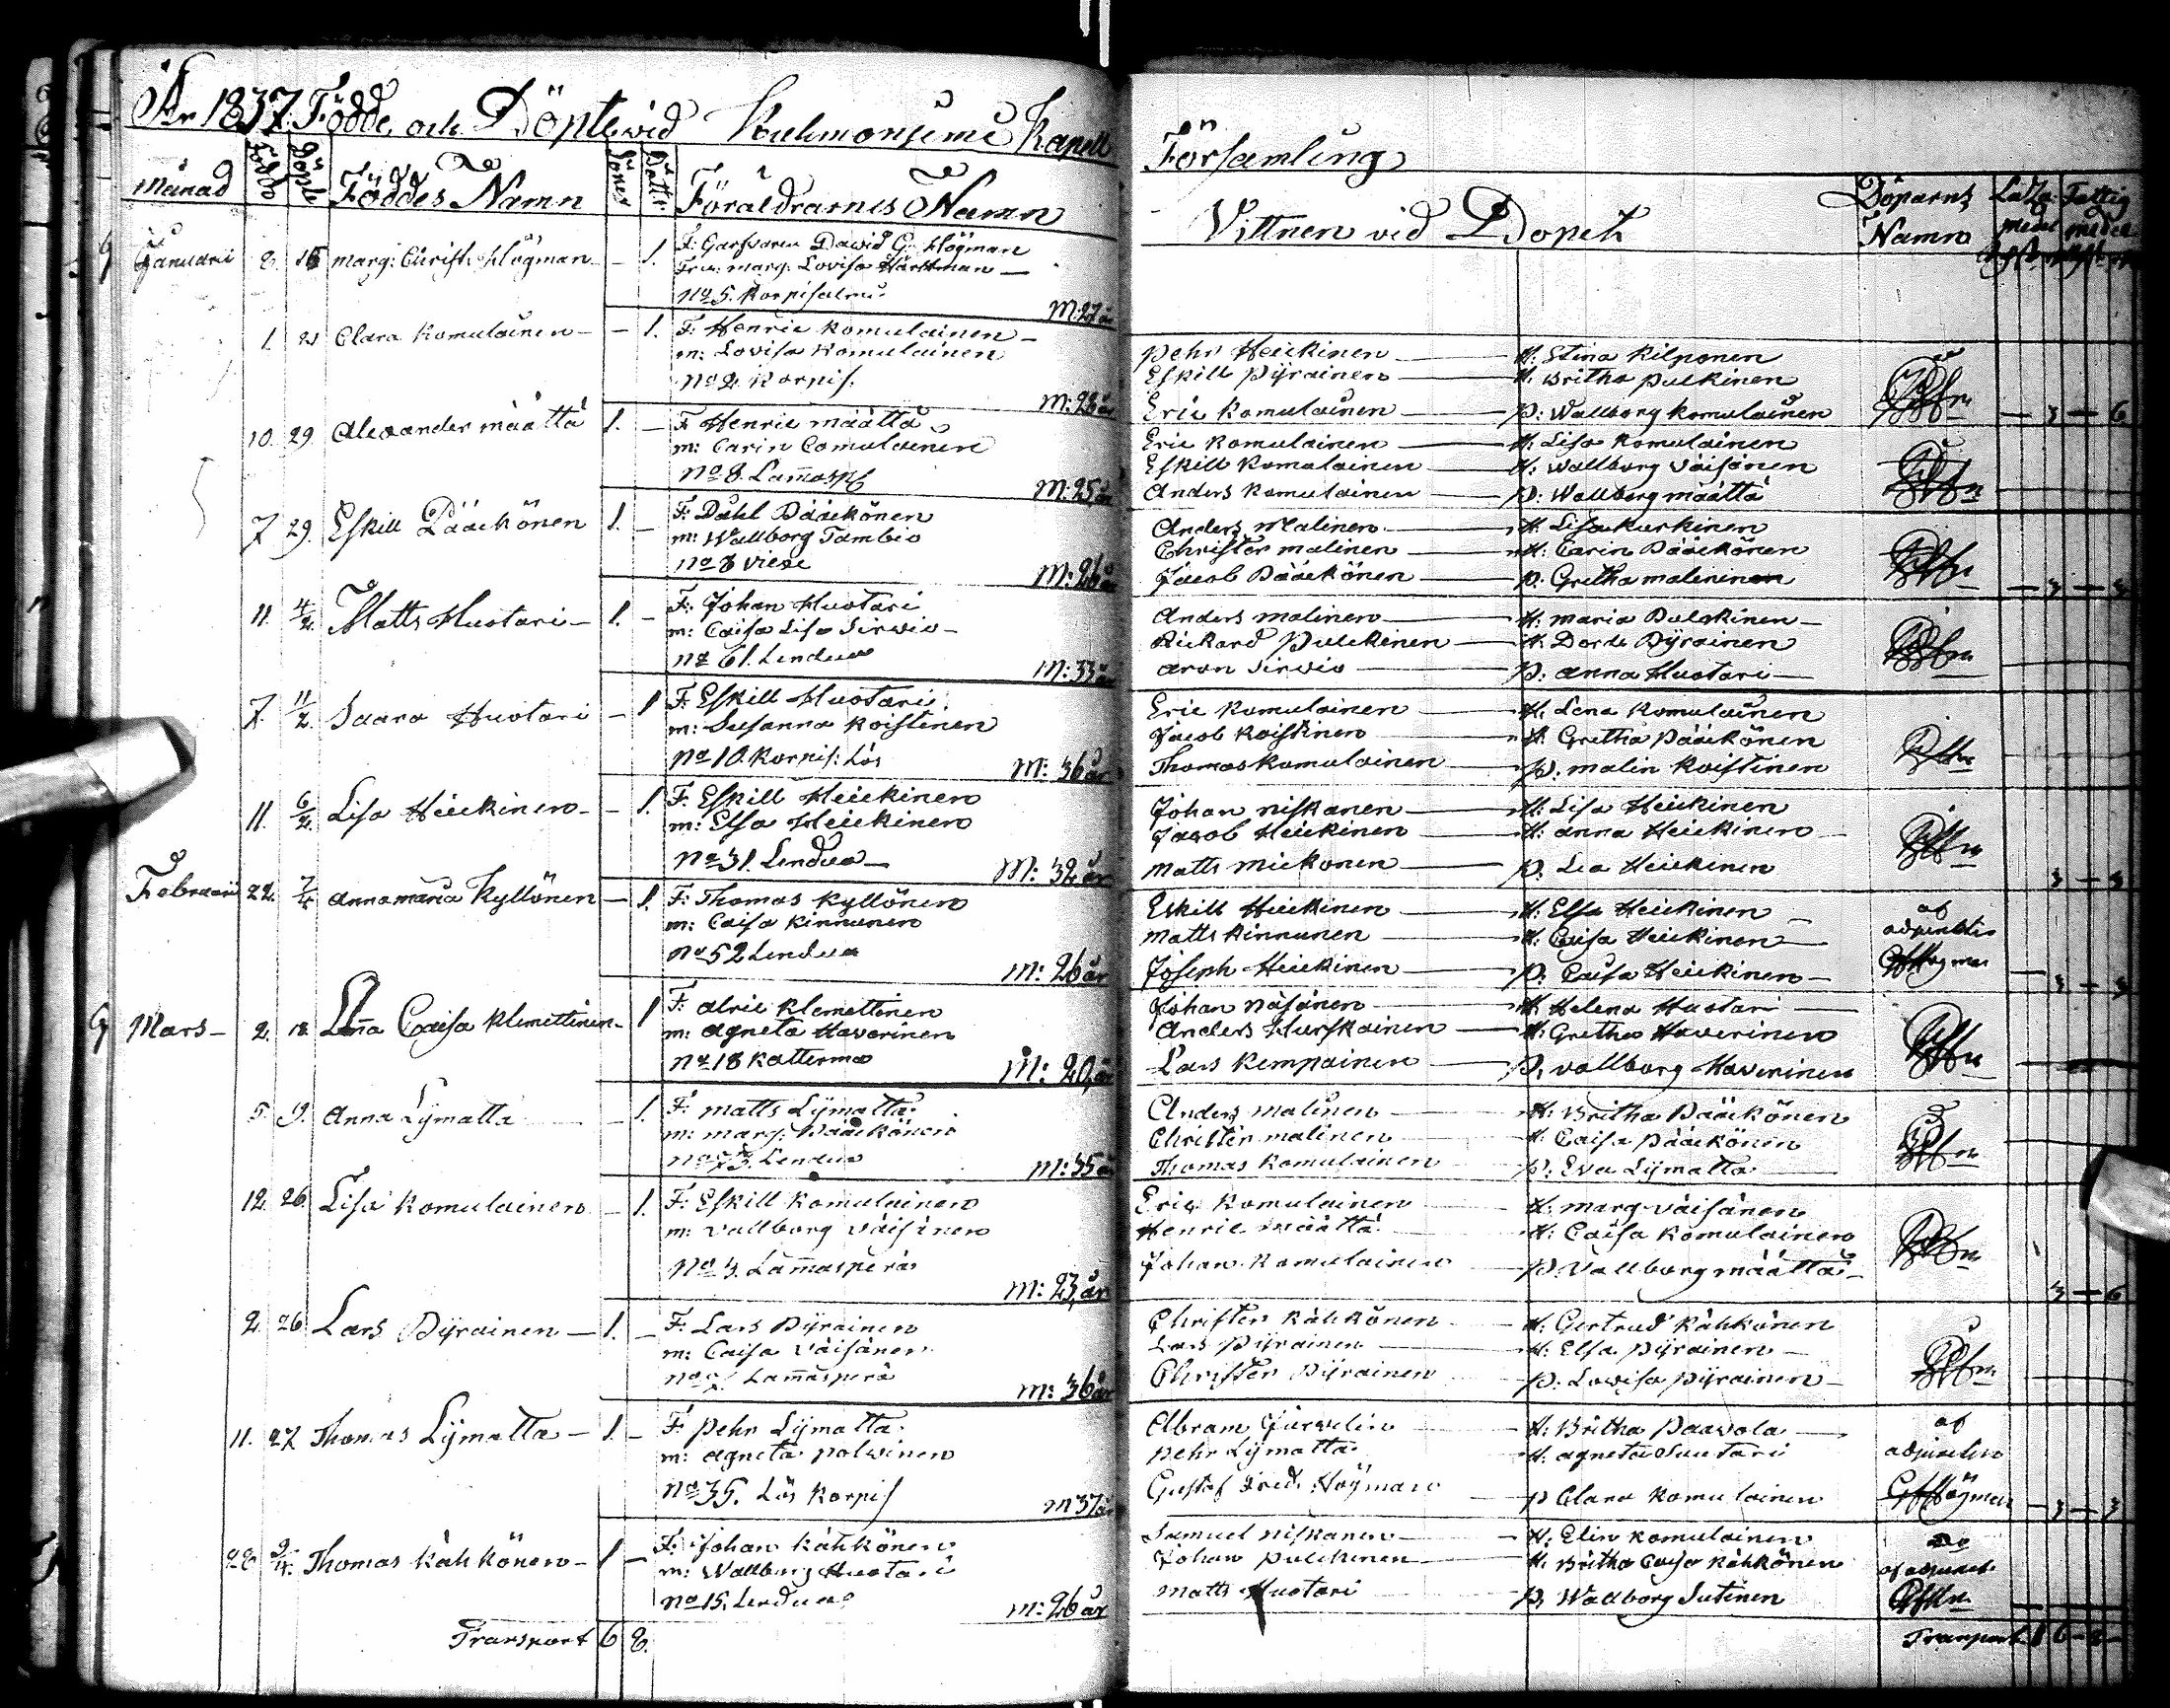 År 1837. Födde och Döpte vid Kuhmoniemi Kapell
Församling
Månad Födde Döpte Föddes Namn Söner Döttr. Föräldrarnes Namn
Vittnen vid Dopet Döparns Namn medel Fattig medel
Januari 8. 15 Marg: Christ: Högman - 1. F: Garfvaren David G. Högman
Fru: Marg: Lovisa
No 5. Korpisalmi
M: 27 år
1. 21 Clara Komulainen - - 1. F: Henric Komulainen -
m: Lovisa Komulainen
No 2. Korpis.
M: 28 år
Pehr Heickinen - H: Stina Kilponen
Eskill Pyrainen - H: Britha Pulkinen
Eric Komulainen - P: Wallborg Komulainen - 3 - 6
10. 29. Alexander Määttä 1. - F Henric Määttä
m: Carin Comulainen
No 8. Lam̅asp
M: 25 år
Eric Komulainen - H: Lisa Komulainen
Eskill Komulainen - H: Wallborg Väisänen
Anders Komulainen - P: Wallborg Määttä
7 29. Eskill Pääckönen 1. - F: Påhl Pääckönen
m: Wallborg Tambio
No 8 Viexe
M: 26 år
Anders Malinen - H: Lisa Kurkinen
Christer Malinen - H: Carin Pääckönen
Jacob Pääckönen - P: Gretha Malininen - 3 - 3
11. 4/2. Matts Huotari - 1. - F: Johan Huotari
m: Caisa Lisa Sirvio -
No 61. Lendua
M: 33 år
Anders Malinen - H: Maria Pulckinen -
Rickard Pulckinen - H: Dorde Pyrainen
Aron Sirvio - P: Anna Huotari -
7. 11/2. Saara Huotari - 1 F: Eskill Huotari
m: Susanna Koistinen
No 10. Korpis: Lös
M: 36 år
Eric Komulainen - H: Lena Komulainen
Jacob Koistinen - H: Gretha Pääckönen
Thomas Komulainen - P: Malin Koistinen
11. 6/2. Lisa Heickinen - - 1. F: Eskill Heickinen
m: Elsa Heickinen
No 31. Lendua -
M: 32 år
Johan Niskanen - H: Lisa Heickinen
Jacob Heickinen - H: Anna Heickinen
Matts Mickonen - P. Lea Heickinen 3 - 3
Februarii 22. 7/4 Annamaria Kyllönen - 1. F: Thomas Kyllönen
m: Caisa Kinnunen
No 52 Lendua
M: 26 år
Eskill Heickinen - H: Elsa Heickinen - af
Matts Kinnunen - H: Caisa Heickinen -
Joseph Heickinen - P. Caisa Heickinen - - 3 - 3
Mars - 2. 18. Caisa Klemettinen - 1 F: Alric Klemettinen
m: Agneta Haverinen
No 18 Katterma
M: 20, år
Johan Näsänen - H: Helena Huotari -
Anders - H: Gretha Haverinen
Lars Kempainen - P. Vallborg Haverinen
5. 19. Anna Lymatta - 1. F: Matts Lymatta
m: Marg: Pääckönen
Lendua
M: 35 år
Anders Malinen - H: Britha Pääckönen
Christer Malinen - H. Caisa Pääckönen
Thomas Komulainen P: Eva Lymatta
12. 26. Lisa Komulainen - 1. F: Eskill Komulainen
m: Vallborg Väisänen
No 3. Lam̅asperä
M: 23, år
Eric Komulainen - H: Marg Väisänen
Henric Määttä - H: Caisa Komulainen
Johan Komulainen - P: Vallborg Määttä - 3 - 6
2. 26 Lars Pyrainen - 1. - F: Lars Pyrainen
m: Caisa Väisänen
Lam̅asperä
M: 36 år
Christer Kähkönen - H: Gertrud Kähkönen
Lars Pyrainen - H: Elsa Pyrainen -
Christer Pyrainen P: Lovisa Pyrainen -
11. 27 Thomas Lymatta - 1. - F: Pehr Lymatta
m: Agneta Polvinen
No 35. Lös Korpis
M 37 år
Abram - H: Britha Paavola - af
Pehr Lymatta - H: Agneta Suutari
Gustaf Fred. Högman - P Clara Komulainen Högman - 3 - 3
28 9/4. Thomas Kähkönen - 1 - F: Johan Kähkönen
m: Wallborg Huotari
No 15. Lendua
M: 26 år
Samuel Niskanen - H: Elin Komulainen
Johan Pulckinen - H: Britha Caisa Kähkönen
Matts Huotari - P, Wallborg Sutinen
Transport 6 8.
Transport